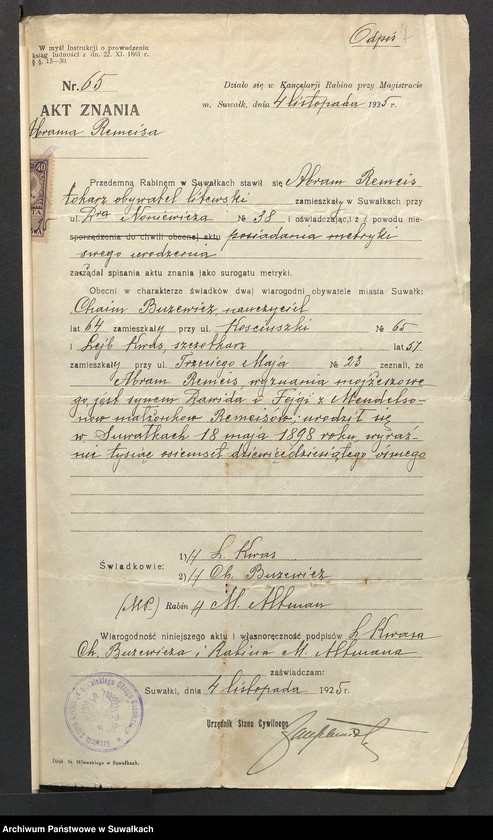 Odpis
W myśl Instrukcji o prowadzeniu
ksiąg ludności z dn. 22. XI. 1861 r.
§ §. 15—30.
Nr. 65
Działo się w Kancelarji Rabina przy Magistracie
m. Suwałk, dnia 4 listopada 1925 r.
AKT ZNANIA
Abrama Remeisa
40
Przedemną Rabinem w Suwałkach stawił się Abram Remeis
tokarz obywatel litewski zamieszkały w Suwałkach przy
ul. Dra Noniewicza № 38 i oświadczając, iż z powodu nie-
sporządzenia do chwili obecnej aktu posiadania metryki
swego urodzenia
zażądał spisania aktu znania jako surogatu metryki.
Obecni w charakterze świadków dwaj wiarogodni obywatele miasta Suwałk:
Chaim Buzewicz, nauczyciel
lat 64 zamieszkały przy ul. Kościuszki № 65
i Lejb Kwas, szczotkarz lat 57
zamieszkały przy ul. Trzeciego Maja № 23 zeznali, że
Abram Remeis, wyznania mojżeszowe-
go, jest synem Dawida i Fejgi z Mendelso-
nów małżonków Remeisów, urodził się
w Suwałkach 18 maja 1898 roku, wyraź-
nie tysiąc osiemset dziewięćdziesiątego ósmego
Świadkowie:
1) /-/ L. Kwas
2) /-/ Ch. Buzewicz
(M.P.) Rabin /-/ M. Altman
Wiarogodność niniejszego aktu i własnoręczność podpisów L. Kwasa
Ch. Buzewicza i Rabina M. Altmana
zaświadczam:
Suwałki, dnia 4 listopada 1925 r.
Urzędnik Stanu Cywilnego
Druk. St. Milewskiego w Suwałkach.
Archiwum Państwowe w Suwałkach